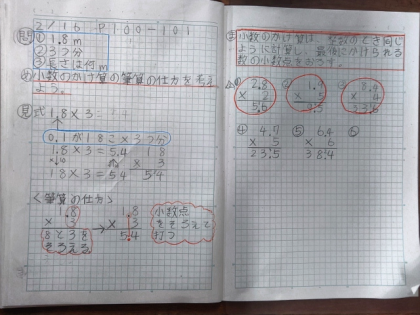 2/16 P100-101
問 ①1.8m
②3つ分
③長さは何m
め小数のかけ算の筆算の仕方を考え
よう。
見式 1.8×3
0.1が18こ×3つ分
1.8×3=5.4
1.8
× 3
5.4
18×3=54
<筆算の仕方>
1.8
× 3
8と3を
そろえる
→
1.8
× 3
5.4
小数点
をそろえて
打つ
ま小数のかけ算は、整数のとき同じ
ように計算し、最後にかけられる
数の小数点をおろす。
① 2.8
× 2
5.6
②
③
④ 4.7
× 5
23.5
⑤ 6.4
× 6
38.4
⑥